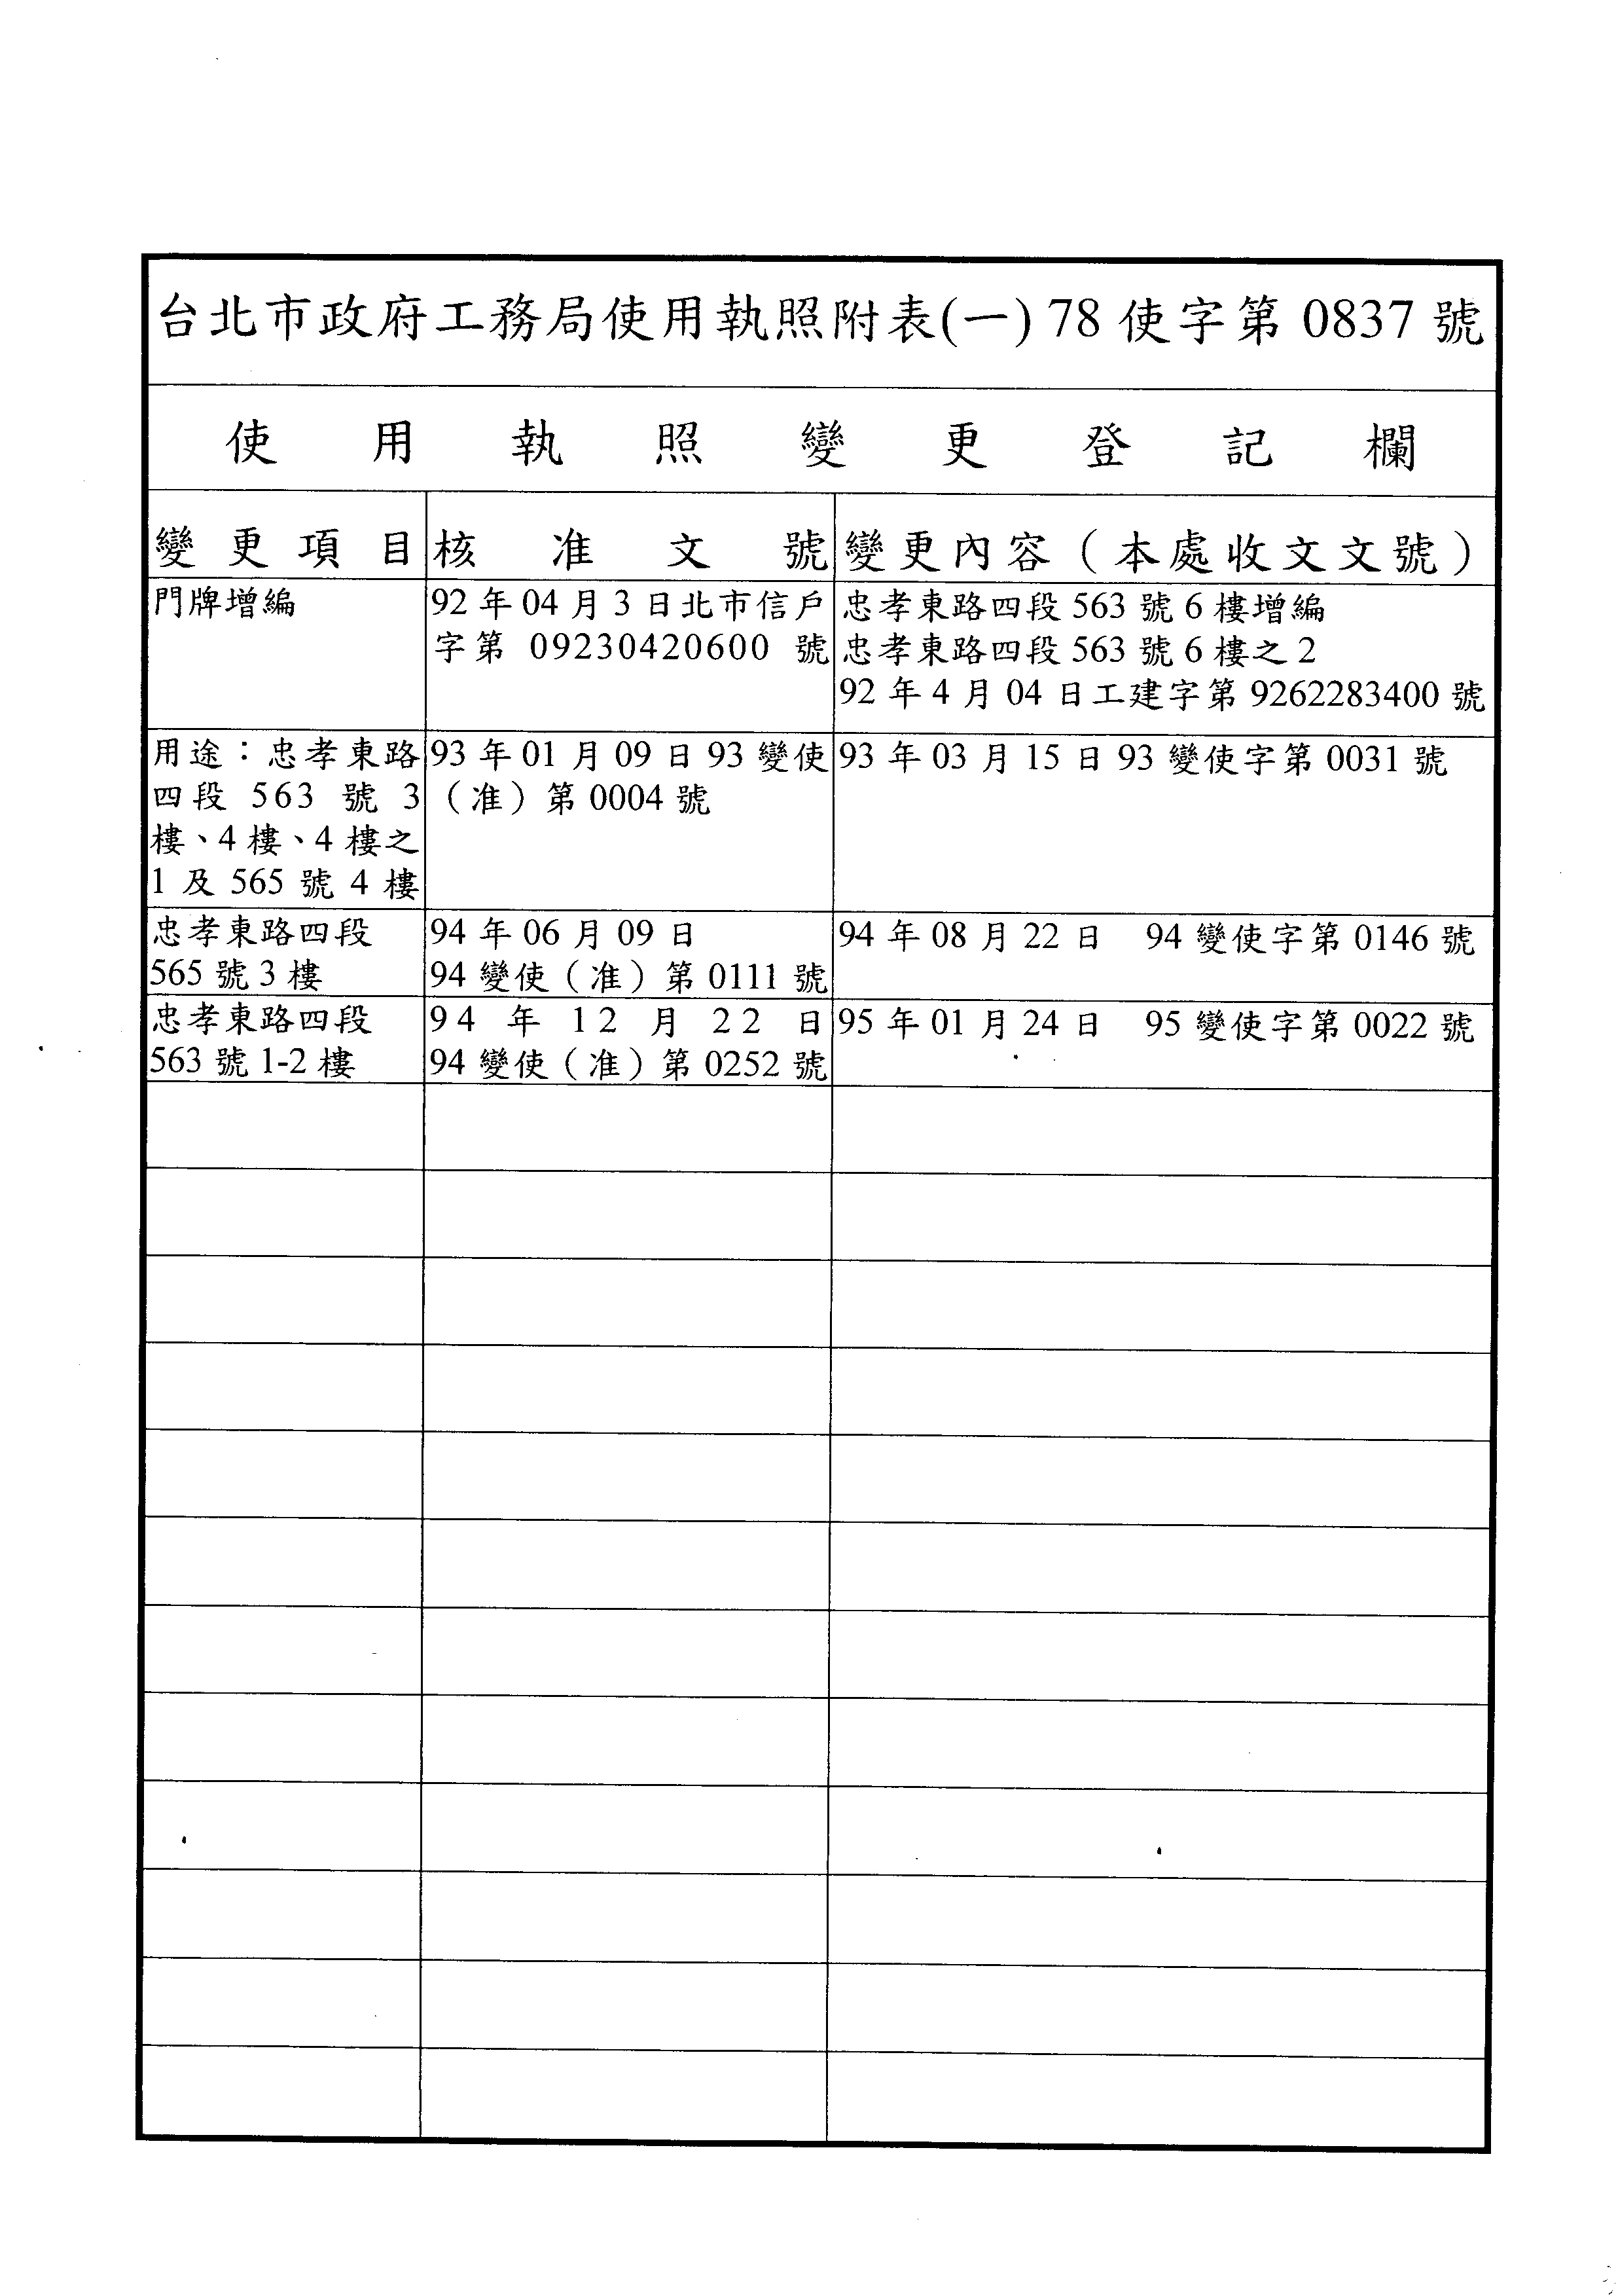 台北市政府工務局使用執照附表(一) 78 使字第 0837 號
使用執照變更登記欄
變更項目 核准文號 變更內容（本處收文文號）
門牌增編
92 年 04 月 3 日北市信戶
字第 09230420600 號
忠孝東路四段 563 號 6 樓增編
忠孝東路四段 563 號 6 樓之 2
92 年 4 月 04 日工建字第 9262283400 號
用途：忠孝東路
四段 563 號 3
樓、4 樓、4 樓之
1 及 565 號 4 樓
93 年 01 月 09 日 93 變使
（准）第 0004 號
93 年 03 月 15 日 93 變使字第 0031 號
忠孝東路四段
565 號 3 樓
94 年 06 月 09 日
94 變使（准）第 0111 號
94 年 08 月 22 日 94 變使字第 0146 號
忠孝東路四段
563 號 1-2 樓
94 年 12 月 22 日
94 變使（准）第 0252 號
95 年 01 月 24 日 95 變使字第 0022 號